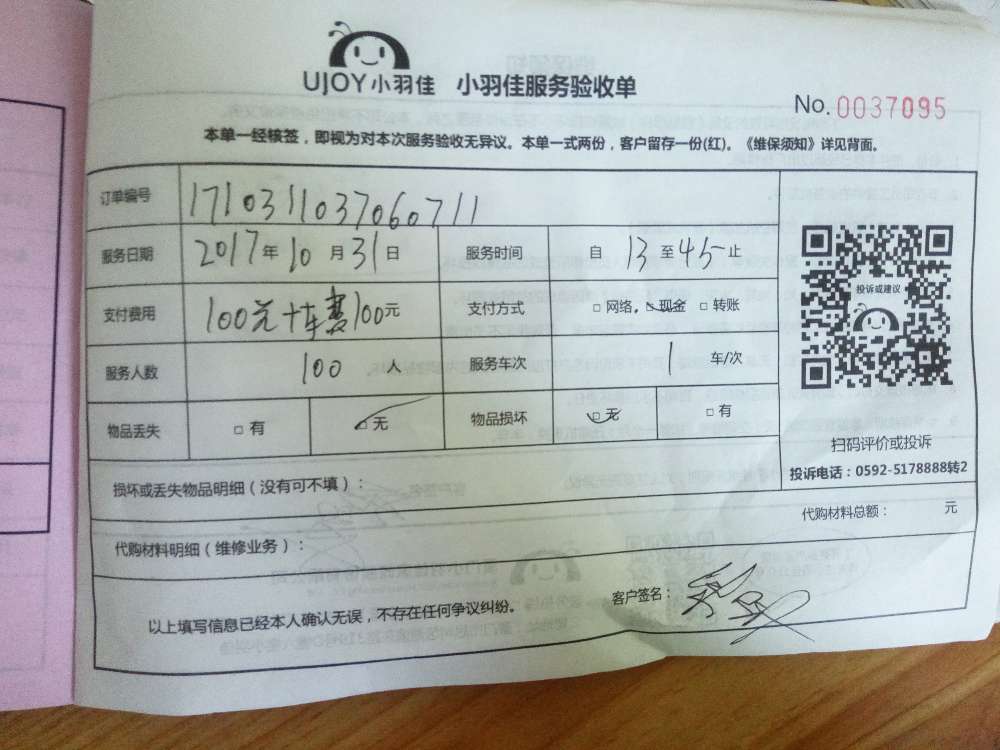 UJOY小羽佳 小羽佳服务验收单
No. 0037095
本单一经核签，即视为对本次服务验收无异议。本单一式两份，客户留存一份(红)。《维保须知》详见背面。
订单编号 171031103706071 1
服务日期 2017年10月31日 服务时间 自 13 至 45 止
支付费用 100元+车费100元 支付方式 □网络 □现金 □转账
服务人数 100 人 服务车次 1 车/次
物品丢失 □有 □无 物品损坏 □无 □有
投诉或建议
扫码评价或投诉
投诉电话：0592-5178888转2
损坏或丢失物品明细（没有可不填）：
代购材料总额： 元
代购材料明细（维修业务）：
以上填写信息已经本人确认无误，不存在任何争议纠纷。
客户签名：